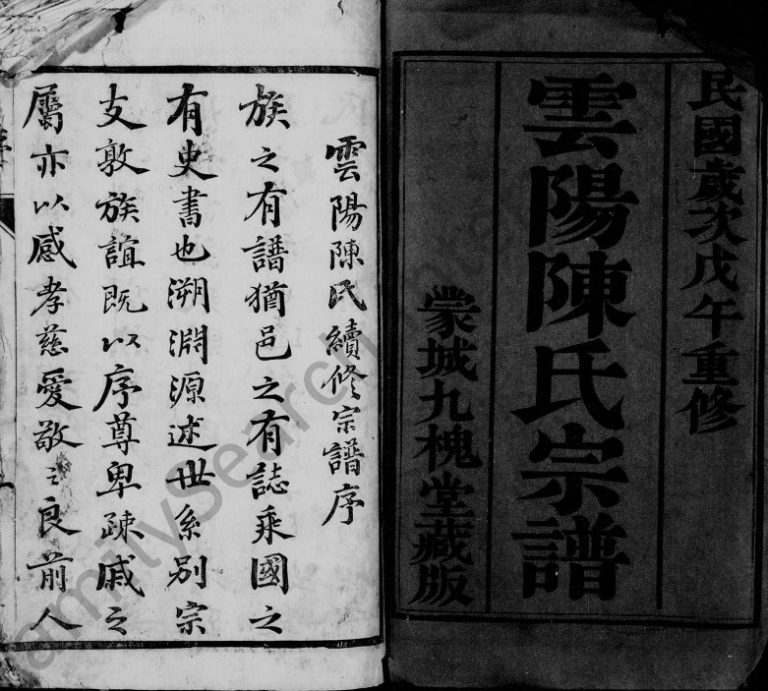 民國歲次戊午重修
雲陽陳氏宗譜
蒙城九槐堂藏版
雲陽陳氏續修宗譜序
族之有譜猶邑之有誌乘國之
有史書也溯淵源述世系別宗
支敦族誼既以序尊卑疎戚之
屬亦以感孝慈愛敬之良前人